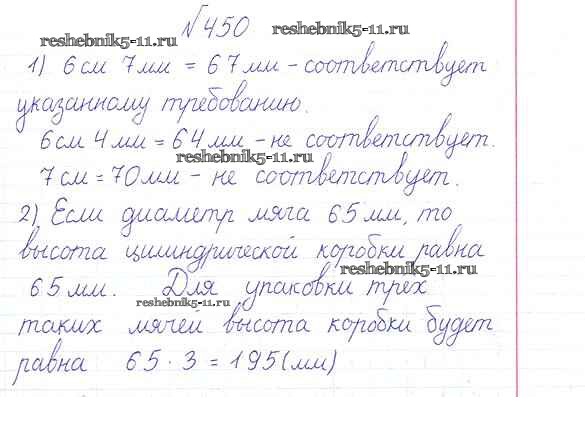 №450
reshebnik5-11.ru
reshebnik5-11.ru
1) 6 см 7 мм = 67 мм – соответствует
указанному требованию.
6 см 4 мм = 64 мм – не соответствует.
reshebnik5-11.ru
7 см = 70 мм – не соответствует.
2) Если диаметр мяча 65 мм, то
высота цилиндрической коробки равна
reshebnik5-11.ru
65 мм. Для упаковки трех
reshebnik5-11.ru
таких мячей высота коробки будет
равна 65 · 3 = 195 (мм)